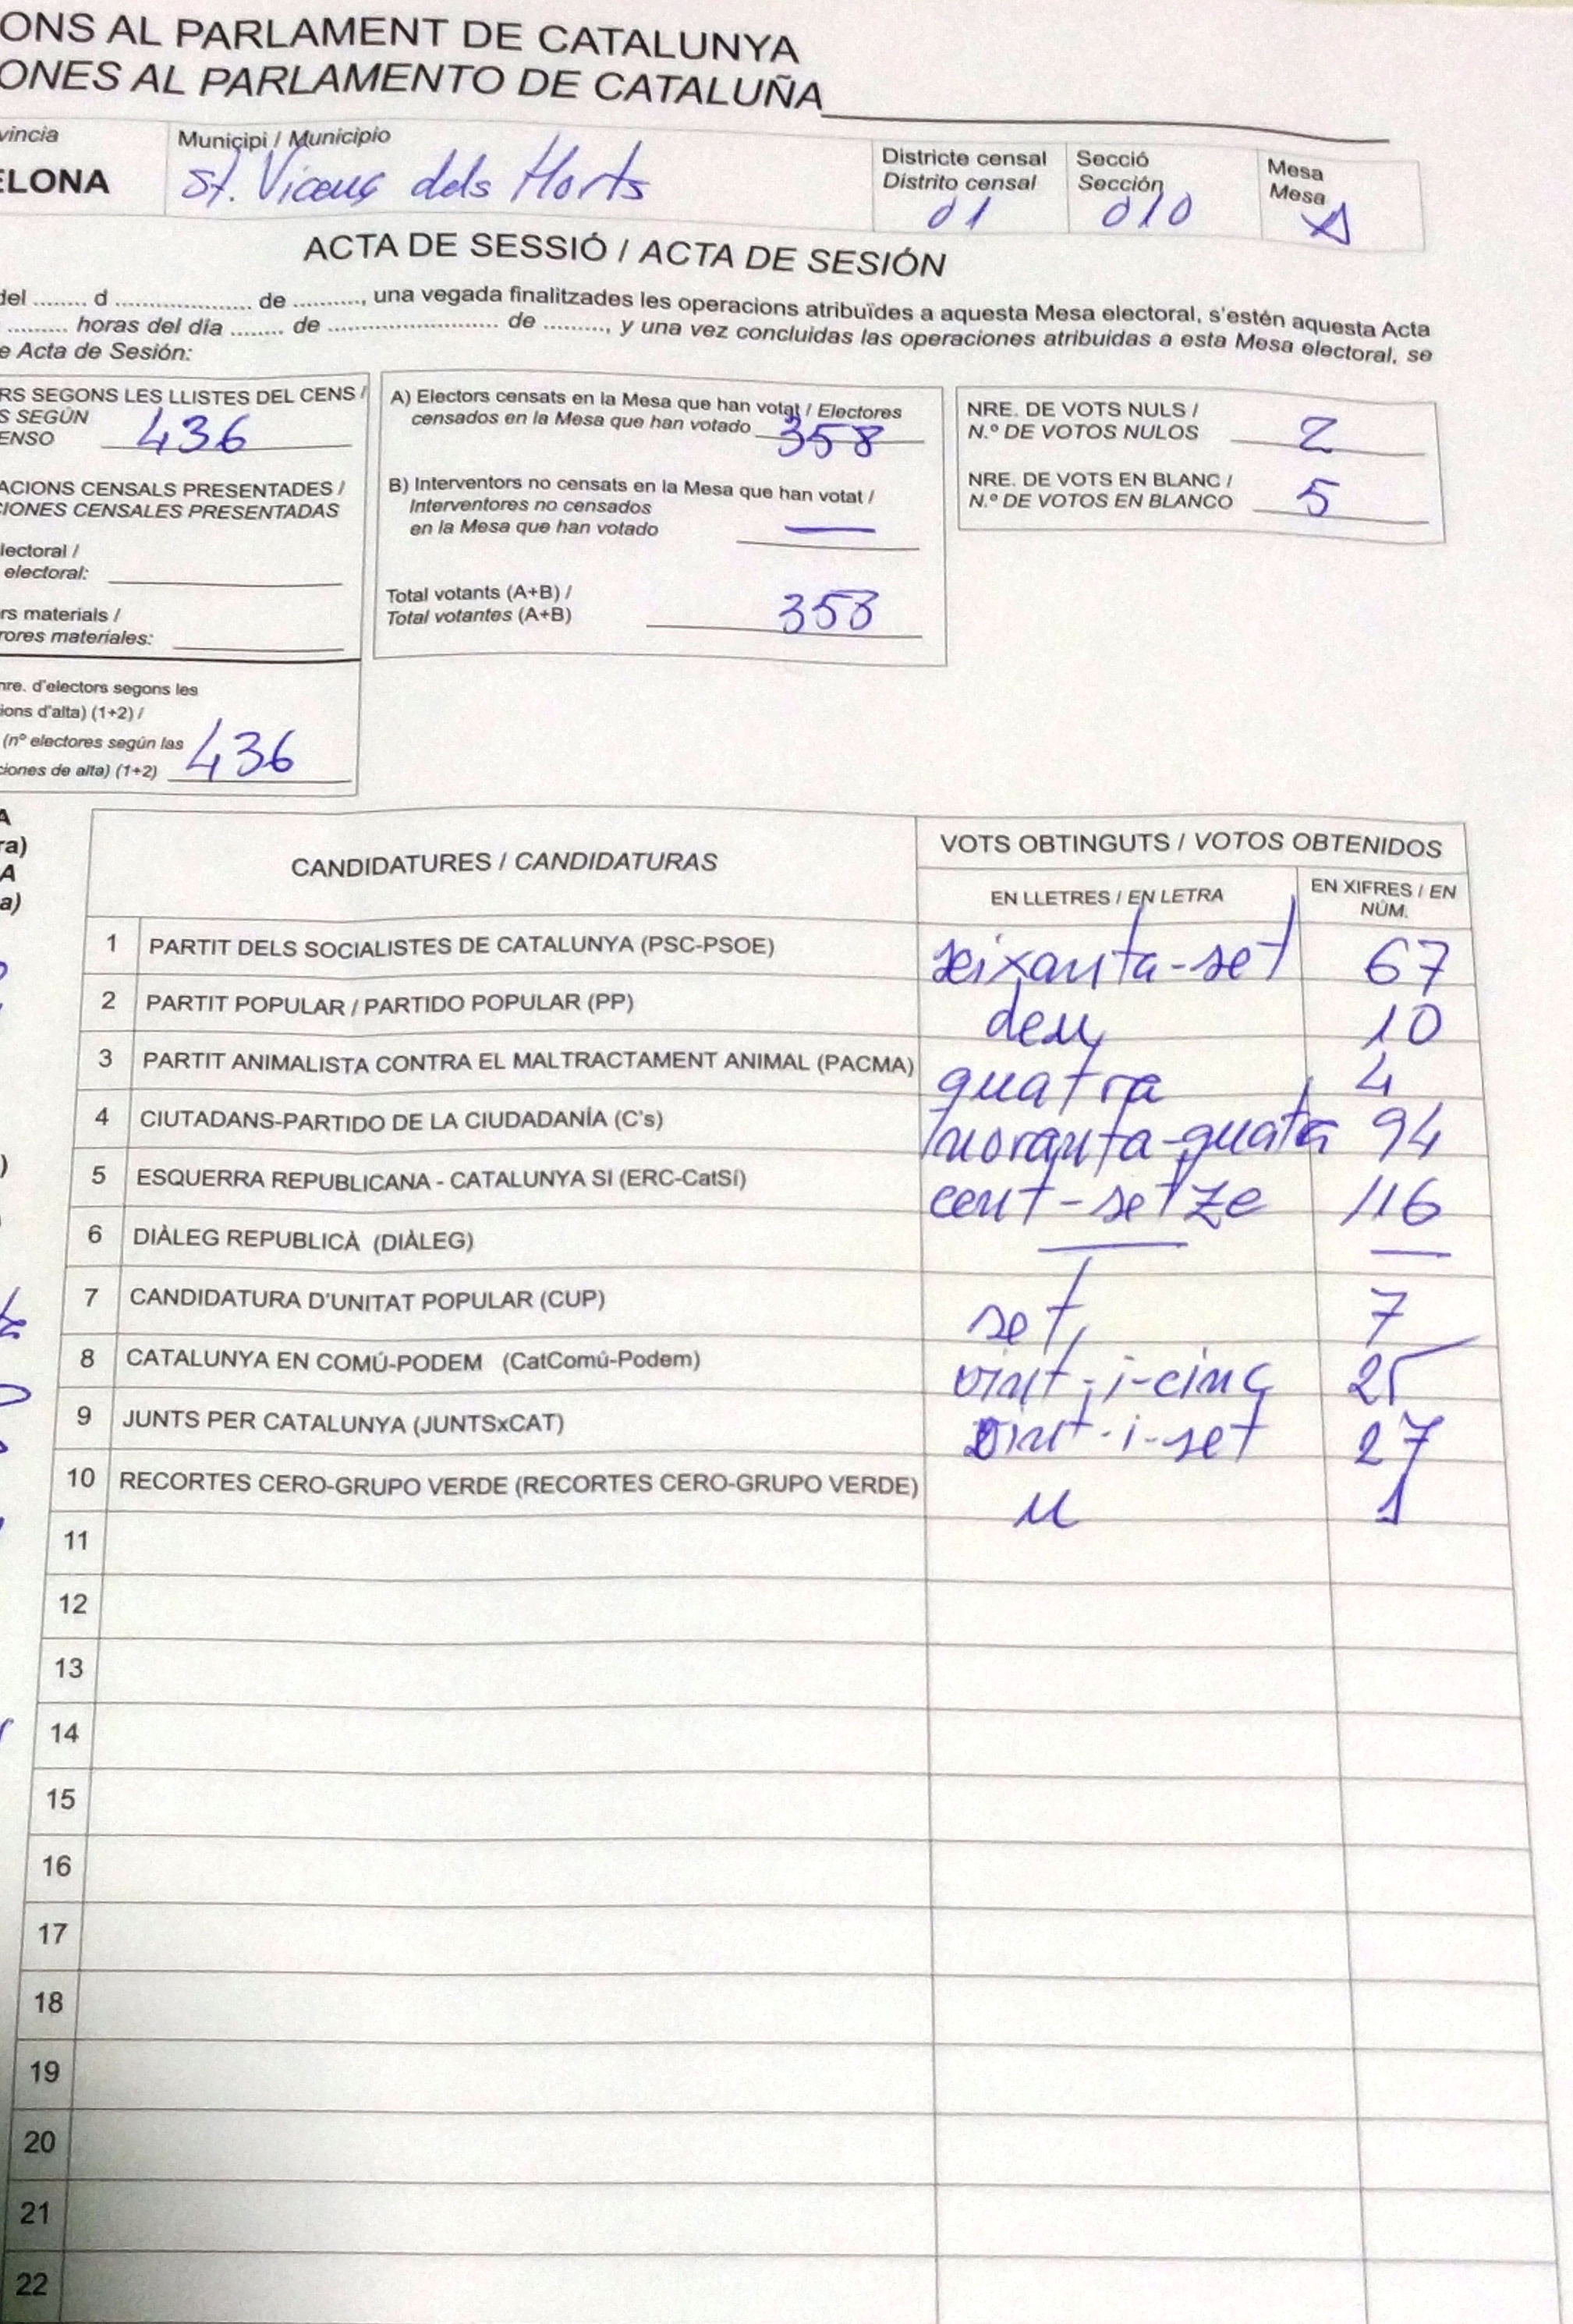 ONS AL PARLAMENT DE CATALUNYA
ONES AL PARLAMENTO DE CATALUÑA
vincia
ELONA
Municipi / Municipio
St. Vicenç dels Horts
Districte censal
Distrito censal
01
Secció
Sección
010
Mesa
Mesa
A
ACTA DE SESSIÓ / ACTA DE SESIÓN
del ........ d .................... de .........., una vegada finalitzades les operacions atribuïdes a aquesta Mesa electoral, s'estén aquesta Acta
......... horas del día ........ de ......................... de ........., y una vez concluidas las operaciones atribuidas a esta Mesa electoral, se
e Acta de Sesión:
RS SEGONS LES LLISTES DEL CENS /
S SEGÚN
ENSO 436
ACIONS CENSALS PRESENTADES /
IONES CENSALES PRESENTADAS
lectoral /
electoral:
rs materials /
rores materiales:
nre. d'electors segons les
ions d'alta) (1+2) /
(nº electores según las
ciones de alta) (1+2) 436
A) Electors censats en la Mesa que han votat / Electores
censados en la Mesa que han votado 358
B) Interventors no censats en la Mesa que han votat /
Interventores no censados
en la Mesa que han votado —
Total votants (A+B) /
Total votantes (A+B) 358
NRE. DE VOTS NULS /
N.º DE VOTOS NULOS 2
NRE. DE VOTS EN BLANC /
N.º DE VOTOS EN BLANCO 5
A
ra)
A
a)
CANDIDATURES / CANDIDATURAS
VOTS OBTINGUTS / VOTOS OBTENIDOS
EN LLETRES / EN LETRA
EN XIFRES / EN
NÚM.
1 PARTIT DELS SOCIALISTES DE CATALUNYA (PSC-PSOE) seixanta-set 67
2 PARTIT POPULAR / PARTIDO POPULAR (PP) deu 10
3 PARTIT ANIMALISTA CONTRA EL MALTRACTAMENT ANIMAL (PACMA) quatra 4
4 CIUTADANS-PARTIDO DE LA CIUDADANÍA (C's) noranta-quatra 94
5 ESQUERRA REPUBLICANA - CATALUNYA SI (ERC-CatSí) cent-setze 116
6 DIÀLEG REPUBLICÀ (DIÀLEG) — —
7 CANDIDATURA D'UNITAT POPULAR (CUP) set 7
8 CATALUNYA EN COMÚ-PODEM (CatComú-Podem) vint-i-cinc 25
9 JUNTS PER CATALUNYA (JUNTSxCAT) vint-i-set 27
10 RECORTES CERO-GRUPO VERDE (RECORTES CERO-GRUPO VERDE) u 1
11
12
13
14
15
16
17
18
19
20
21
22